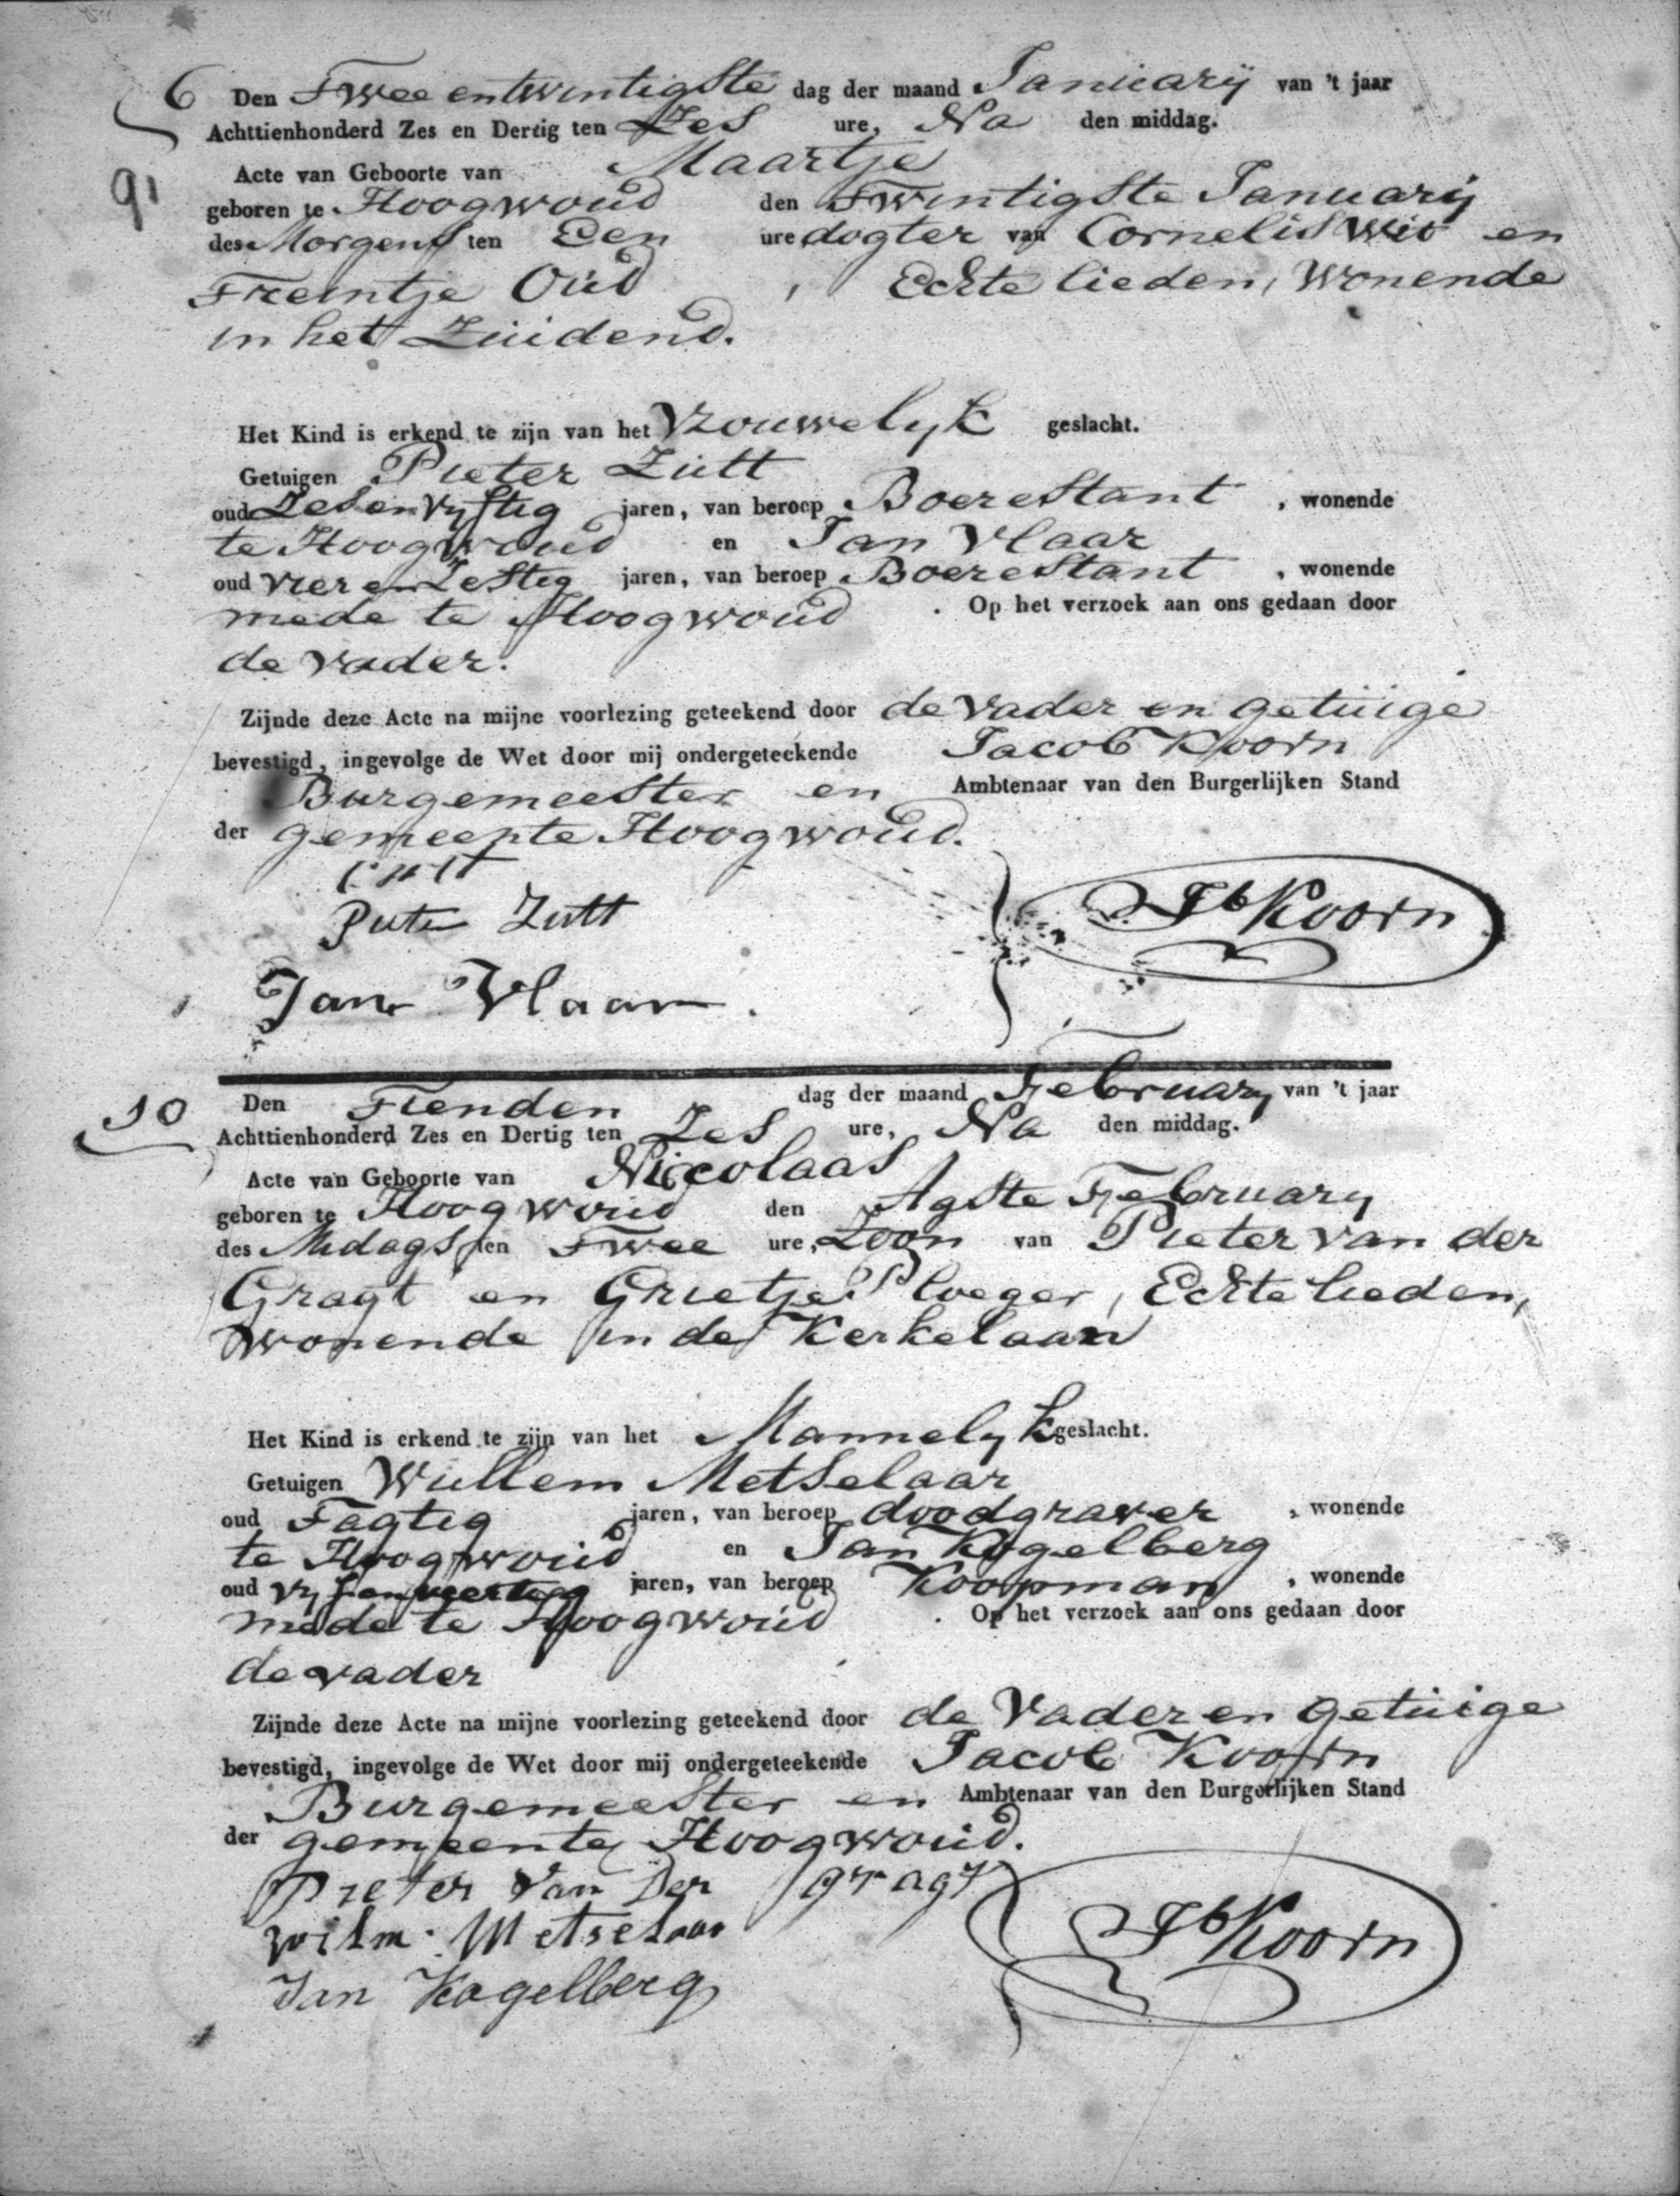 6 Den Twee entwintigste dag der maand Januarij van 't jaar
Achttienhonderd Zes en Dertig ten Zes ure, Na den middag.
91 Acte van Geboorte van Maartje
geboren te Hoogwoud den Twintigste January
des Morgens ten Een ure dogter van Cornelis Wit en
Treintje Oud, Echte lieden, Wonende
in het Zuidend.
Het Kind is erkend te zijn van het Vrouwelyk geslacht.
Getuigen Pieter Zutt
oud Zes en Vyftig jaren, van beroep Boerestant, wonende
te Hoogwoud en Jan Vlaar
oud vier en Zestig jaren, van beroep Boerestant, wonende
mede te Hoogwoud. Op het verzoek aan ons gedaan door
de vader.
Zijnde deze Acte na mijne voorlezing geteekend door de vader en getuige
bevestigd, ingevolge de Wet door mij ondergeteekende Jacob Koorn
Burgemeester en Ambtenaar van den Burgerlijken Stand
der gemeente Hoogwoud.
Pieter Zutt
Jb Koorn
Jan Vlaar.
10 Den Tienden dag der maand February van 't jaar
Achttienhonderd Zes en Dertig ten Zes ure, Na den middag.
Acte van Geboorte van Nicolaas
geboren te Hoogwoud den Agste February
des Midags ten Twee ure, Zoon van Pieter van der
Gragt en Grietje Ploeger, Echte lieden,
wonende in de Kerkelaan
Het Kind is erkend te zijn van het Mannelyk geslacht.
Getuigen Willem Metselaar
oud Tagtig jaren, van beroep doodgraver, wonende
te Hoogwoud en Jan Kogelberg
oud vyf en veertig jaren, van beroep Koopman, wonende
mede te Hoogwoud. Op het verzoek aan ons gedaan door
de vader
Zijnde deze Acte na mijne voorlezing geteekend door de Vader en getuige
bevestigd, ingevolge de Wet door mij ondergeteekende Jacob Koorn
Burgemeester en Ambtenaar van den Burgerlijken Stand
der gemeente Hoogwoud.
Pieter Van Der gragt
wilm. Metselaar
Jb Koorn
Jan Kogelberg